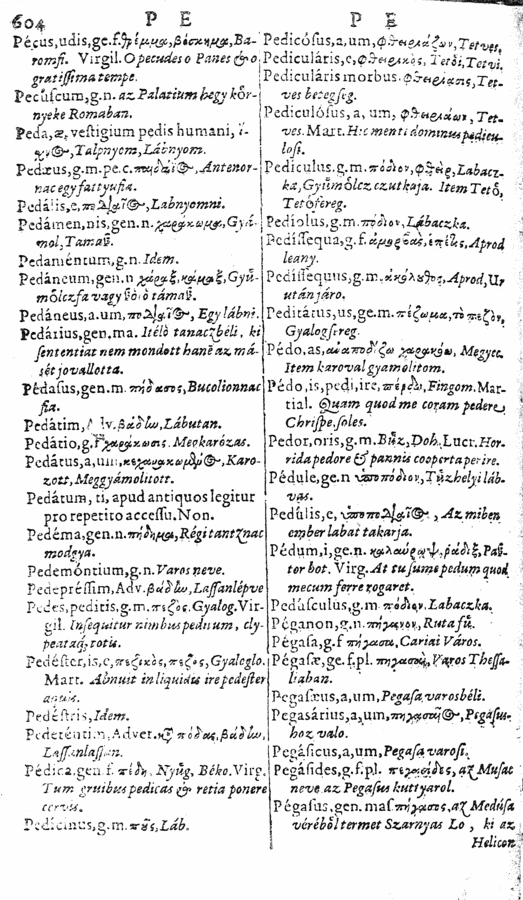 604 P E P E
Pécus,udis,ge.f. θρέμμα, βόσκημα, Ba-
romfi. Virgil. O pecudes o Panes & o
gratissima tempe.
Pecúscum,g.n. az Palatium hegy kőr-
nyeke Romaban.
Peda,æ, vestigium pedis humani,
Talpnyom, Lábnyom.
Pedæus,g.m.pe.c. Antenor-
nac egy fattyufia.
Pedális,e, Labnyomni.
Pedámen,nis,gen.n. χαράκωμα, Gyü-
mol, Tamaſ.
Pedaméntum,g.n. Idem.
Pedáneum,gen.n χάραξ, κάμαξ, Gyü-
mőlczfa vagy támaſ.
Pedáneus,a,um, Egy lábni.
Pedárius,gen.ma. Itélő tanaczbéli, ki
sententiat nem mondott hanē az má-
sét jovallotta.
Pédasus,gen.m. πήδασος, Bucolionnac
fia.
Pedátim, Adv. βάδην, Lábutan.
Pedátio,g.f. Megkarózas.
Pedátus,a,um, Karo-
zott, Meggyámolitott.
Pedátum, ti, apud antiquos legitur
pro repetito accessu. Non.
Pedéma,gen.n. πήδημα, Régi tantznac
modgya.
Pedemóntium,g.n. Varos neve.
Pedepréssim, Adv. βάδην, Lassanlépve
Pedes,peditis,g.m. πεζός. Gyalog. Vir-
gil. Insequitur nimbus peditum, cly-
peataq́, totis.
Pedéster,is,e, πεζικὸς, πεζὸς, Gyaleglo.
Mart. Abnuit in liquidis ire pedester
aquis.
Pedéstris, Idem.
Pedeténtim, Adver. πόδας, βάδην,
Lassanlassan.
Pédica,gen f. πέδη, Nyűg, Béko. Virg.
Tum gruibus pedicas & retia ponere
cervis.
Pedicinus,g.m. πȣ̃ς, Láb.
Pedicósus,a,um, φθειριάζων, Tetves.
Pediculáris,e, φθειρικὸς, Tetűi, Tetvi.
Pediculáris morbus. φθειρίασις, Tet-
ves betegseg.
Pediculósus, a, um, φθειριάων, Tet-
ves. Mart. Hic menti dominus pedicu-
losi.
Pediculus.g.m. πόδιον, φθεὶρ, Labacz-
ka, Gyűmőlcz czutkaja. Item Tetű,
Tetűfereg.
Pediolus,g.m. πόδιον, Lábaczka.
Pedíssequa,g.f. Aprod
leany.
Pedíssequus,g.m. ἀκόλουθος, Aprod, Ur
után jaro.
Peditátus,us,ge.m. πέζωμα, τὸ πεζὸν,
Gyalogsereg.
Pédo,as, Megyec.
Item karoval gyamolitom.
Pédo,is,pedi,ire, πέρδω, Fingom. Mar-
tial. Quam quod me coram pedere,
Chrispe, soles.
Pedor,oris,g.m. Bűz, Doh. Lucr. Hor-
rida pedore & pannis cooperta perire.
Pédule,ge.n ὑποπόδιον, Tűzhelyi láb-
vas.
Pedúlis,e, Az miben
ember labat takarja.
Pédum,i,ge.n. καλαύροψ, ῥάβδιξ, Paſ-
tor bot. Virg. At tu sume pedum quod
mecum ferre rogaret.
Pedúsculus,g.m πόδιον. Labaczka.
Péganon,g.n. πήγανον, Ruta fű.
Pégasa,g.f πήγασα, Cariai Város.
Pégasæ,ge.f.pl. πηγασαὶ, Varos Thessa-
liaban.
Pegasæus,a,um, Pegasa varosbéli.
Pegasárius,a,um, Pegasus-
hoz valo.
Pegásicus,a,um, Pegasa varosi.
Pegásides,g.f.pl. πεγασίδες, az Musac
neve az Pegasus kuttyarol.
Pégasus,gen.mas. πήγασος, az Medúsa
véréből termet Szarnyas Lo, ki az
Helicon